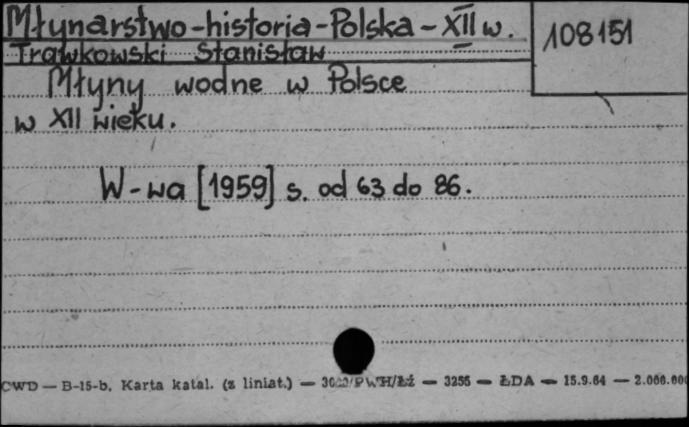 Młynarstwo-historia-Polska-XII w.
108151
Trawkowski Stanisław
Młyny wodne w Polsce
w XII wieku.
W-wa [1959] s. od 63 do 86.
CWD — B-15-b. Karta katal. (z liniat.) — PWH/Łź — 3255 — ŁDA — 15.9.64 — 2.000.000